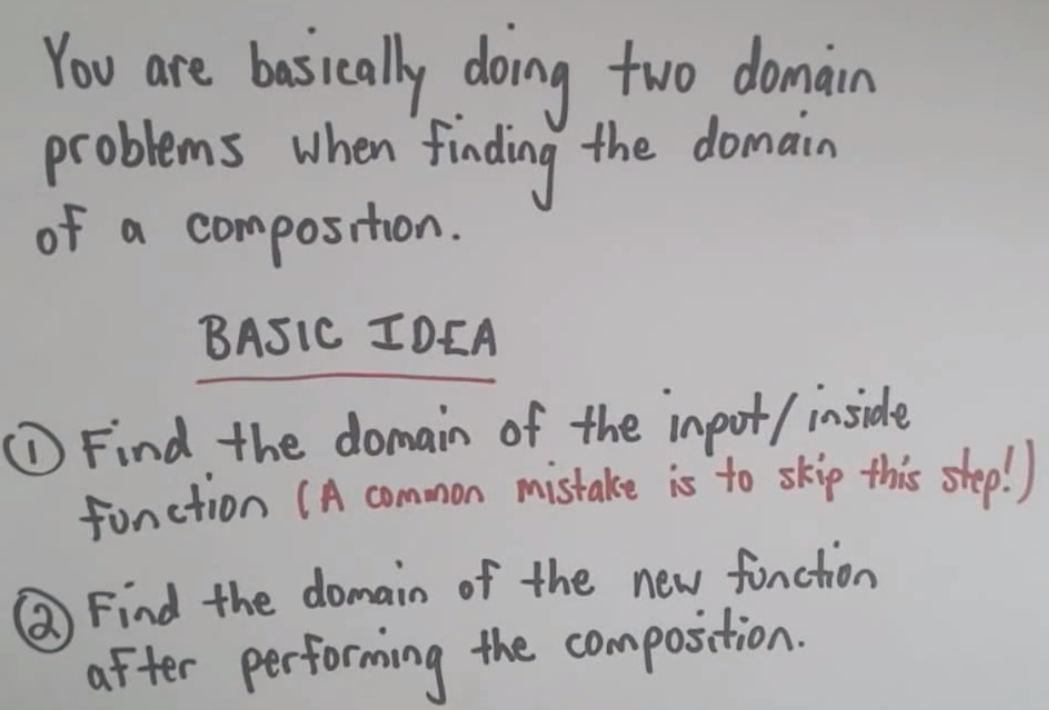 You are basically doing two domain
problems when finding the domain
of a composition.
BASIC IDEA
① Find the domain of the input/inside
function (A common mistake is to skip this step!)
② Find the domain of the new function
after performing the composition.